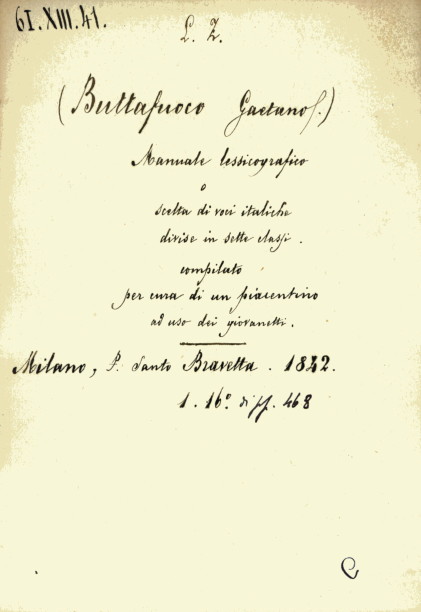 61.XIII.41.
L. Z.
(Buttafuoco Gaetano f.)
Manuale lessicografico
o
scelta di voci italiche
divise in sette classi.
compilato
per cura di un piacentino
ad uso dei giovanetti.
Milano, P. Santo Bravetta. 1842.
1. 16° di ff. 468
C